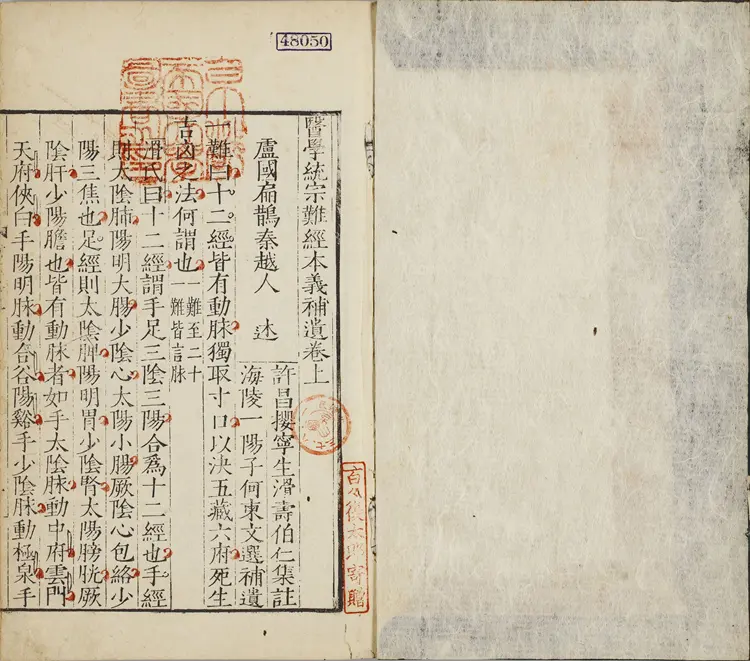 48050
醫學統宗難經本義補遺卷上
許昌攖寧生滑壽伯仁集註
盧國扁鵲秦越人 述
海陵一陽子何柬文選補遺
一難曰十二經皆有動脉獨取寸口以決五藏六府死生
吉凶之法何謂也 一難至二十
一難皆言脉
滑氏曰十二經謂手足三陰三陽合爲十二經也手經
則太陰肺陽明大腸少陰心太陽小腸厥陰心包絡少
陽三焦也足經則太陰脾陽明胃少陰腎太陽膀胱厥
陰肝少陽膽也皆有動脉者如手太陰脉動中府雲門
天府俠白手陽明脉動合谷陽谿手少陰脉動極泉手
寄贈